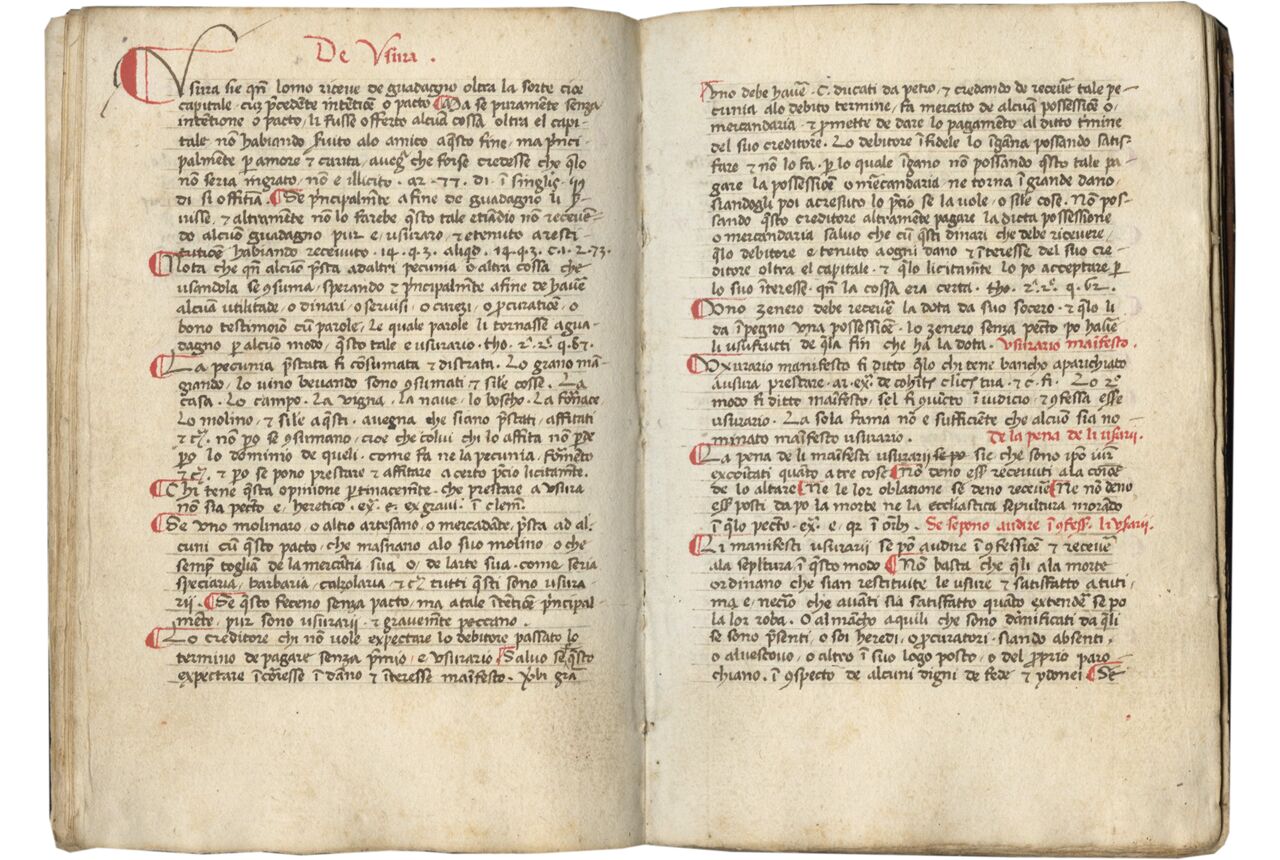 De Vsura.
Vsura sie qñ lomo riceve de guadagno oltra la sorte cioe
capitale cuʒ p̃cedẽte intẽtiõe o pacto Ma se puramẽte senza
intẽtione o pacto, li fusse offerto alcũa cossa oltra el capi-
tale nõ habiando fuito alo amico aq̃sto fine, ma p̃nci-
palmẽte p̱ amore ⁊ carita, aveg̃ che forse credesse che q̃lo
nõ seria ingrato, nõ e illicito. ar. ⁊⁊. di. ĩ singlis
di si offitia. Se p̃ncipalmẽte a fine de guadagno li p̃-
visse, ⁊ altramẽte nõ lo farebe q̃sto tale etiãdio nõ receven-
do alcũo guadagno pur e, usuraro, ⁊ e tenuto aresti-
tutiõe habiando recevuto. 14. q. 3. aliqd. 14. q. 3. c. 1. 2. 73.
Nota che qñ alcũo p̃sta ad altri pecunia o altra cossa che
usandola se ꝯsuma, sperando ⁊ p̃ncipalmẽte afine de havẽ
alcũa utilitade, o dinari, o servisi, o carezi, o p̱curatiõe, o
bono testimoĩo cũ parole, Le quale parole li tornasse agua-
dagno p̱ alcũo modo, q̃sto tale e usurario. tho. 2ª. 2ᵉ. q. 67.
La pecunia p̃stata fi cõsumata ⁊ distrata. Lo grano mã-
giando, lo vino bevando sono ꝯsumati ⁊ sile cosse. La
casa. Lo campo. La vigna. La nave. lo boscho. La fornace.
Lo molino, ⁊ sile aq̃sti. avegna che siano p̃stati, affittati
⁊ cᵃ. nõ p̱o se ꝯsumano, cioe che colui chi lo affitta nõ p̱de
p̱o lo dominio de queli. come fa ne la pecunia, formẽto
⁊ cᵃ. ⁊ p̱o se pono prestare ⁊ affitare a certo p̃cio licitamẽte.
Chi tene q̃sta opinione p̱tinacemẽte. che prestare a usura
nõ sia pecto e, heretico. exª. e. ex gravi. ĩ clem̃.
Se vno molinaro, o altro artesano, o mercadãte, p̃sta ad al-
cuni cũ q̃sto pacto, che masnano alo suo molino, o che
semp̃ togliã de la mercãtia sua, o, de larte sua. come, seria
speciaria, barbaria, calzolaria ⁊ cᵃ tutti q̃sti sono usura-
rii. Se q̃sto feceno senza pacto, ma a tale ĩtẽtiõe p̃ncipal-
mẽte, pur sono usurarii ⁊ gravemẽte peccano.
Lo creditore chi nõ vole expectare lo debitore passato lo
termino de pagare senza p̃mio, e vsurario. Salvo se q̃sto
expectare ĩcoresse ĩ dãno ⁊ ĩteresse maĩfesto. Vbi grã
Uno debe havẽ. C. ducati da petro, ⁊ credando de recevẽ tale pe-
cunia alo debito termine, fa mercato de alcũa possessiõe o,
mercandaria, ⁊ p̱mette de dare lo pagamẽto al ditto tmine
del suo creditore. Lo debitore ĩfidele lo ĩgãna possando satis-
fare ⁊ nõ lo fa. p̱ lo quale ĩgano nõ possando q̃sto tale pa-
gare la possessiõe o mẽcandaria ne torna ĩ grande dano,
siandogli poi acresuto lo p̃cio se la vole, o sile cose. Nõ pos-
sando q̃sto creditore altramẽte pagare la dicta possessione
o mercandaria salvo che cũ q̃sti dinari che debe ricevere,
q̃lo debitore e tenuto aogni dano ⁊ ĩteresse del suo cre-
ditore oltra el capitale. ⁊ q̃lo licitamẽte lo po acceptare p̱
lo suo ĩteresse. qñ la cossa era certa. tho. 2ª. 2ᵉ. q. 62.
Uno zenero debe recevẽ la dota da suo socero. ⁊ q̃lo li
da ĩpegno vna possessiõe. lo zenero senza pecto po havẽ
li usufructi de q̃la fin che ha la dota. Vsurario maĩfesto.
Vxurario manifesto fi ditto q̃lo chi tene bancho aparichiato
a usura prestare. ar. ex. de cohit clic tua. ⁊ c. fi. Lo 2º
modo fi ditto maĩfesto, sel fi ꝯvĩcto ĩ iudicio, ⁊ ꝯfessa esse
usurario. La sola fama nõ e sufficiẽte che alcũo sia no-
minato maĩfesto usurario. De la pena de li usurarii.
La pena de li maĩfesti usurarii sie che sono ip̱o iure
excoĩcati quãto a tre cose Nõ deno ess̃ recevuti ala cõiõe
de lo altare Ne le lor oblatione se deno recevẽ Ne nõ deno
ess̃ posti da po la morte ne la ecclesiastica sepultura morãdo
ĩ q̃lo pecto. exª. e, qr ĩ oĩb. Se se pono audire ĩ ꝯfess. li usurarii.
Li manifesti usurarii se põ audire ĩ ꝯfessiõe ⁊ recevẽ
ala sepltura ĩ q̃sto modo Nõ basta che q̃li ala morte
ordinano che sian restituite le usure ⁊ satisfatto a tuti,
ma e, necrio che avãti sia satisfatto quãto extendẽ se po
la lor roba. O almãcho aquili che sono dãnificati da q̃li
se sono p̃senti, o soi heredi, o p̱curatori. siando absenti,
o alvescovo, o altro ĩ suo logo posto, o del p̱prio paro-
chiano. ĩ ꝯspecto de alcuni digni de fede ⁊ ydonei Se